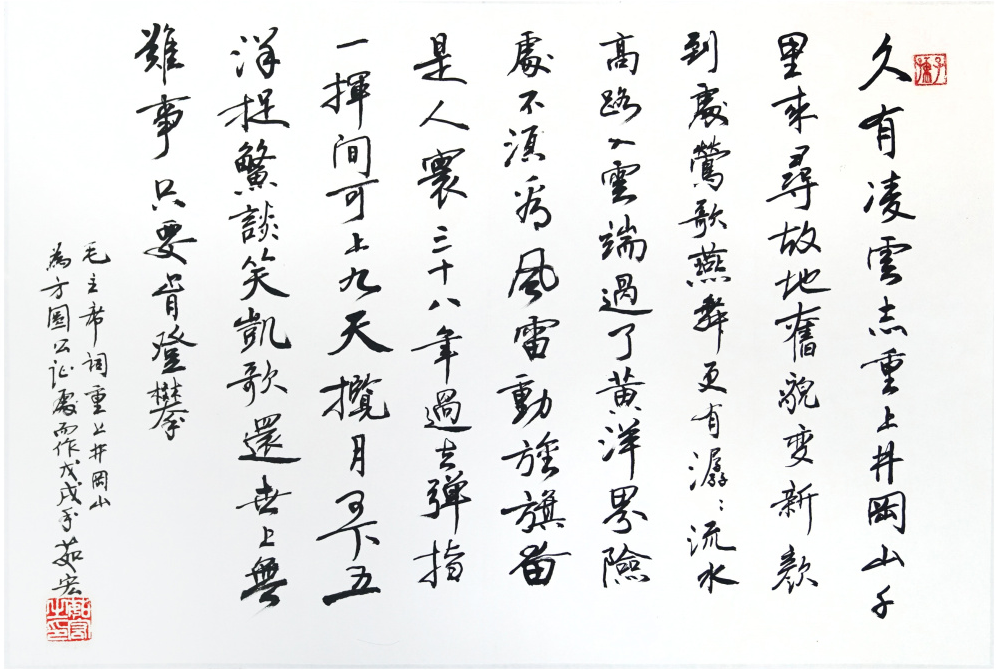 久有凌雲志重上井岡山千
里來尋故地舊貌變新顏
到處鶯歌燕舞更有潺〻流水
高路入雲端過了黄洋界險
處不須看風雷動旌旗奋
是人寰三十八年過去彈指
一揮間可上九天攬月可下五
洋捉鱉談笑凱歌還世上無
難事只要肯登攀
毛主席詞重上井岡山
為方圓公证處而作戊戌年茹宏